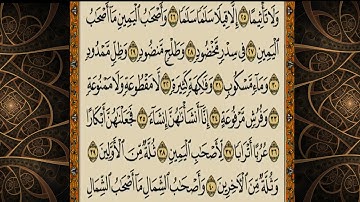 وَلَا تَأْثِيمًا ٢٥ إِلَّا قِيلًا سَلَٰمًا سَلَٰمًا ٢٦ وَأَصْحَٰبُ ٱلْيَمِينِ مَآ أَصْحَٰبُ
ٱلْيَمِينِ ٢٧ فِى سِدْرٍ مَّخْضُودٍ ٢٨ وَطَلْحٍ مَّنضُودٍ ٢٩ وَظِلٍّ مَّمْدُودٍ
٣٠ وَمَآءٍ مَّسْكُوبٍ ٣١ وَفَٰكِهَةٍ كَثِيرَةٍ ٣٢ لَّا مَقْطُوعَةٍ وَلَا مَمْنُوعَةٍ
٣٣ وَفُرُشٍ مَّرْفُوعَةٍ ٣٤ إِنَّآ أَنشَأْنَٰهُنَّ إِنشَآءً ٣٥ فَجَعَلْنَٰهُنَّ أَبْكَارًا
٣٦ عُرُبًا أَتْرَابًا ٣٧ لِّأَصْحَٰبِ ٱلْيَمِينِ ٣٨ ثُلَّةٌ مِّنَ ٱلْأَوَّلِينَ ٣٩
وَثُلَّةٌ مِّنَ ٱلْءَاخِرِينَ ٤٠ وَأَصْحَٰبُ ٱلشِّمَالِ مَآ أَصْحَٰبُ ٱلشِّمَالِ